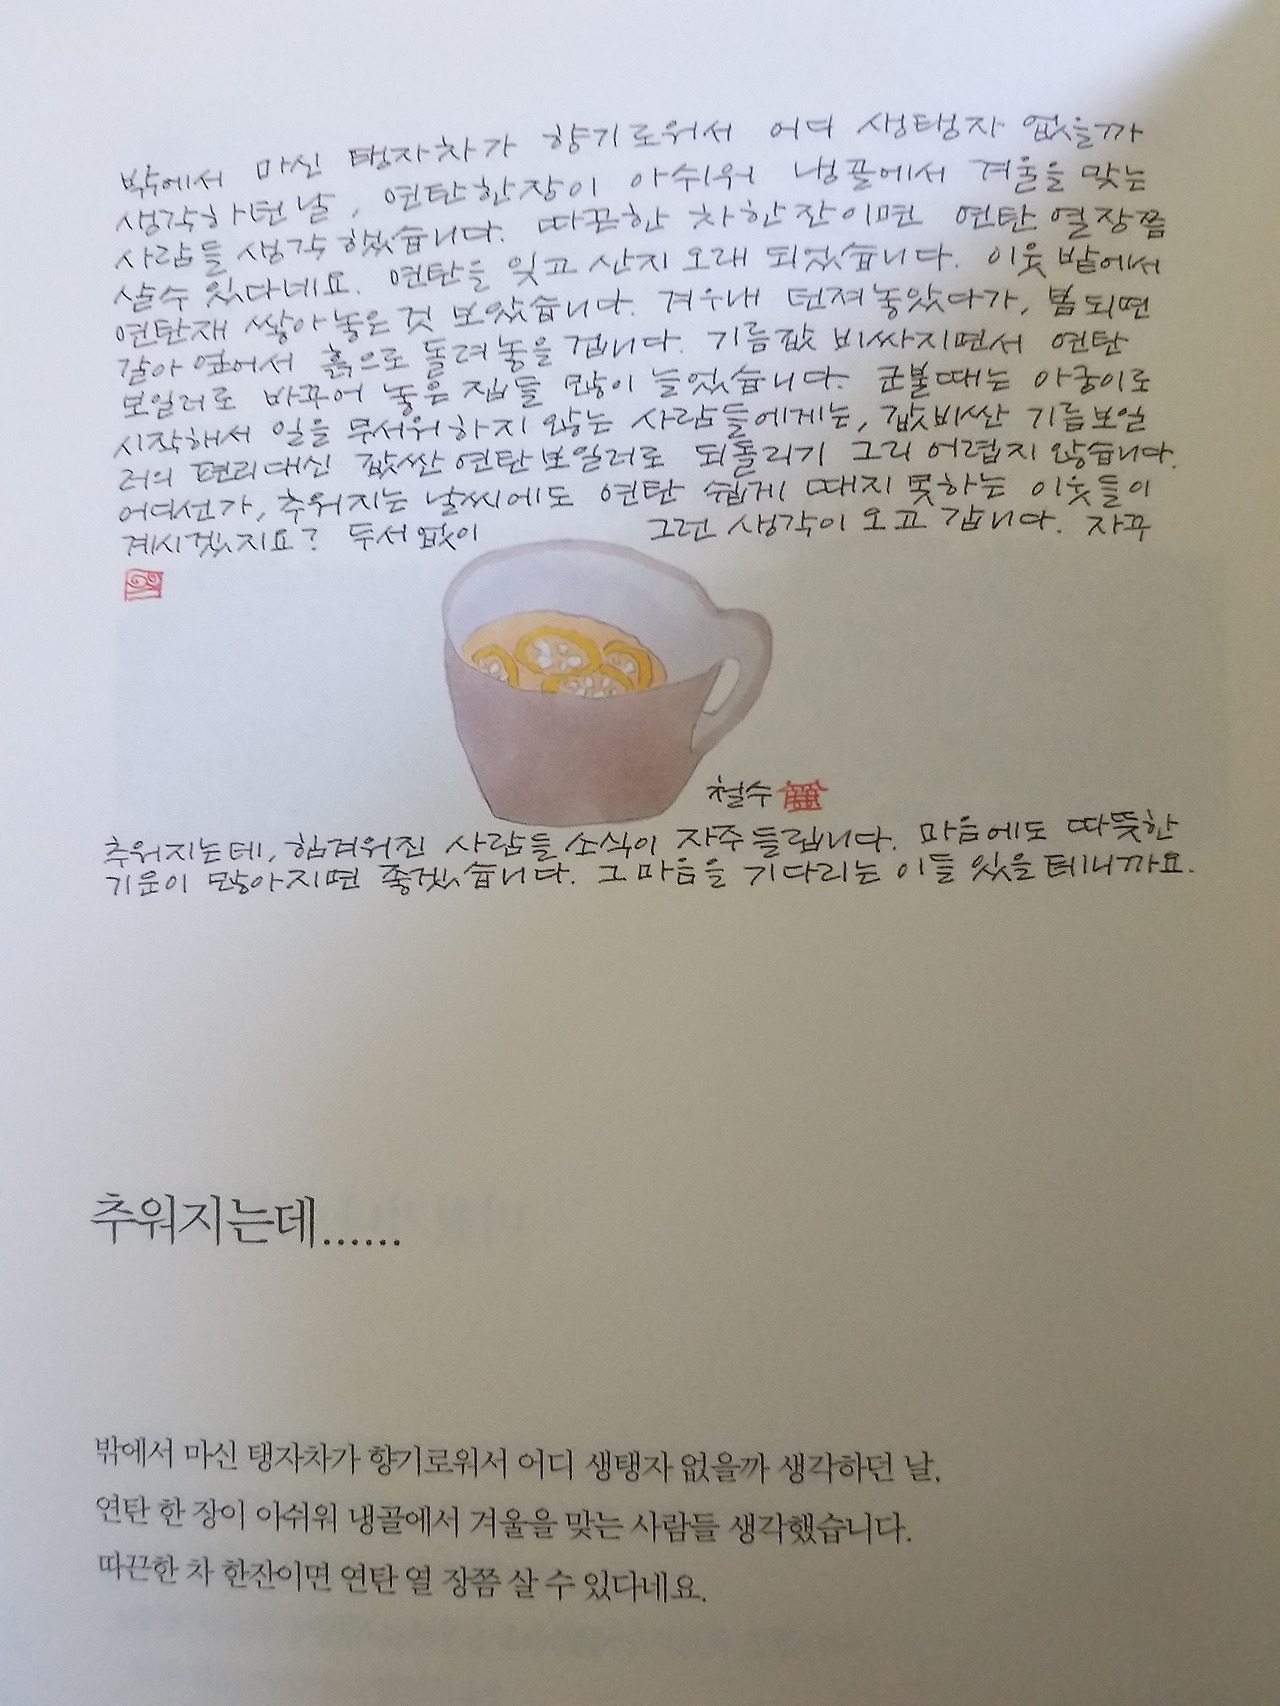 밖에서 마신 탱자차가 향기로워서 어디 생탱자 없을까
생각하던 날, 연탄한장이 아쉬워 냉골에서 겨울을 맞는
사람들 생각했습니다. 따끈한 차한잔이면 연탄 열장쯤
살수 있다네요. 연탄을 잊고 산지 오래 되었습니다. 이웃 밭에서
연탄재 쌓아 놓은 것 보았습니다. 겨우내 던져놓았다가, 봄 되면
갈아 엎어서 흙으로 돌려 놓을 겁니다. 기름값 비싸지면서 연탄
보일러로 바꾸어 놓은 집들 많이 늘었습니다. 군불때는 아궁이로
시작해서 일을 무서워하지 않는 사람들에게는, 값비싼 기름보일
러의 편리대신 값싼 연탄보일러로 되돌리기 그리 어렵지 않습니다.
어디선가, 추워지는 날씨에도 연탄 쉽게 때지 못하는 이웃들이
계시겠지요? 두서없이 그런 생각이 오고 갑니다. 자꾸
철수
추워지는데, 힘겨워진 사람들 소식이 자주 들립니다. 마음에도 따뜻한
기운이 많아지면 좋겠습니다. 그 마음을 기다리는 이들 있을 테니까요.
추워지는데......
밖에서 마신 탱자차가 향기로워서 어디 생탱자 없을까 생각하던 날,
연탄 한 장이 아쉬워 냉골에서 겨울을 맞는 사람들 생각했습니다.
따끈한 차 한잔이면 연탄 열 장쯤 살 수 있다네요.